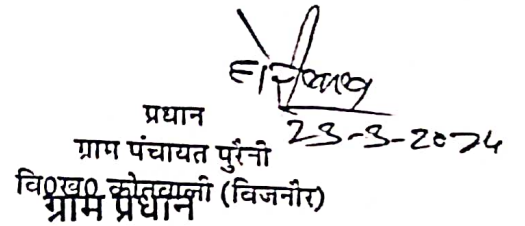 प्रधान
23-3-2024
ग्राम पंचायत पुरैनी
वि०ख० कोतवाली (बिजनौर)
ग्राम प्रधान